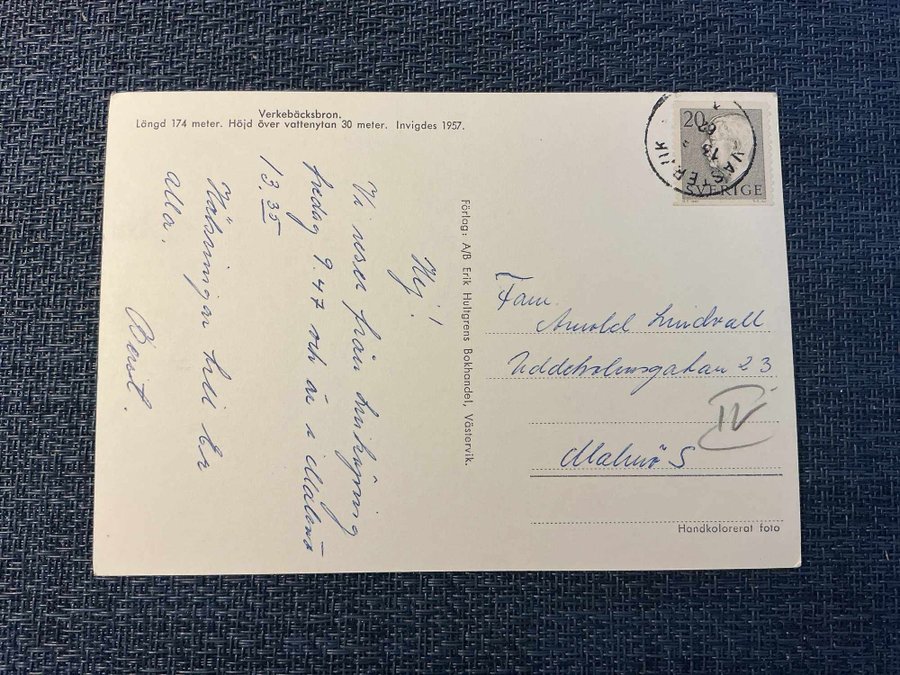 Verkebäcksbron.
Längd 174 meter. Höjd över vattenytan 30 meter. Invigdes 1957.
Hej!
Vi reser från Linköping
fredag 9.47 och är i Malmö
13.35
Hälsningar till Er
alla.
Förlag: A/B Erik Hultgrens Bokhandel, Västervik.
20
SVERIGE
VÄSTERVIK
13
Fam.
Arnold Lindvall
Uddeholmsgatan 23
IV
Malmö S
Handkolorerat foto